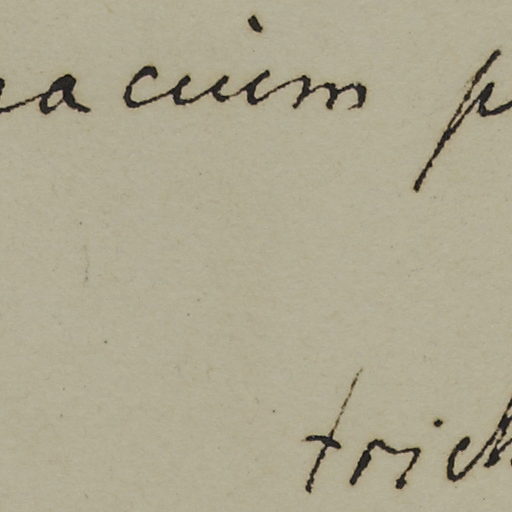 acium p
trich